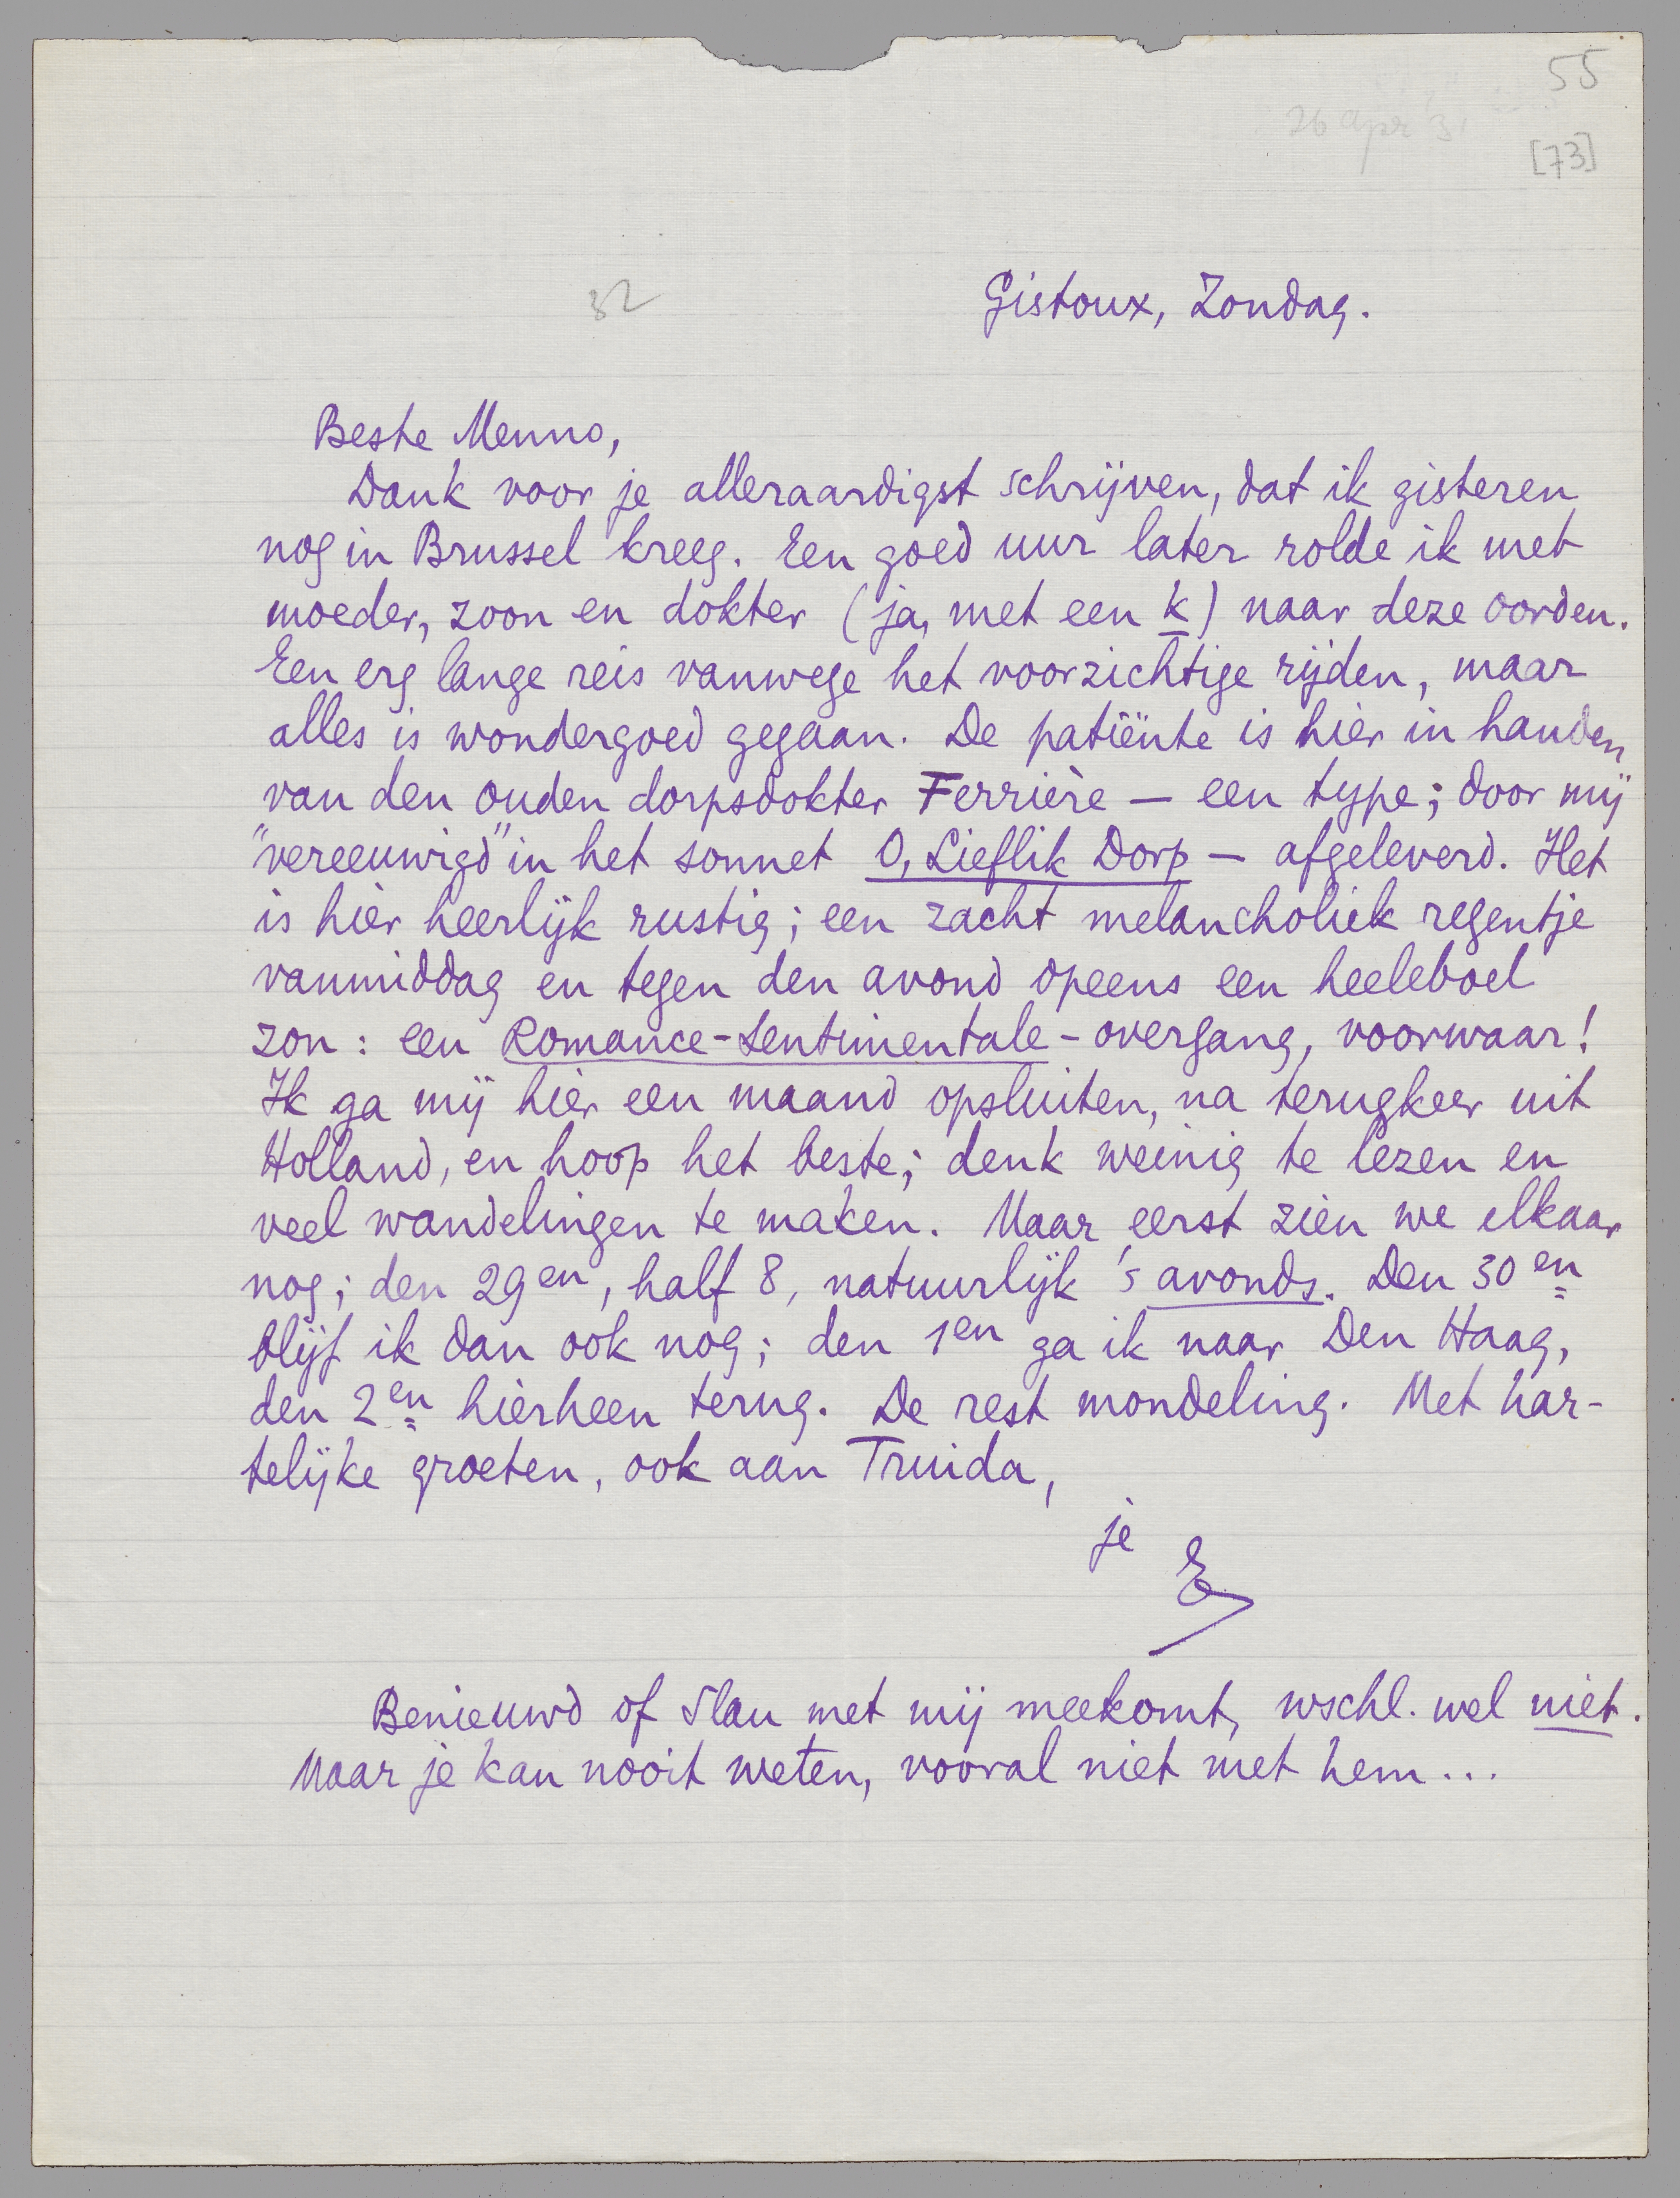 55
26 apr 31
[73]
32
Gistoux, Zondag.
Beste Menno,
Dank voor je alleraardigst schrijven, dat ik gisteren
nog in Brussel kreeg. Een goed uur later rolde ik met
moeder, zoon en dokter (ja, met een k) naar deze oorden.
Een erg lange reis vanwege het voorzichtige rijden, maar
alles is wondergoed gegaan. De patiënte is hier in handen
van den ouden dorpsdokter Ferrière — een type; door mij
"vereeuwigd" in het sonnet O, Lieflik Dorp — afgeleverd. Het
is hier heerlijk rustig; een zacht melancholiek regentje
vanmiddag en tegen den avond opeens een heeleboel
zon: een Romance-Sentimentale-overgang, voorwaar!
Ik ga mij hier een maand opsluiten, na terugkeer uit
Holland, en hoop het beste; denk weinig te lezen en
veel wandelingen te maken. Maar eerst zien we elkaar
nog; den 29en, half 8, natuurlijk 's avonds. Den 30en
blijf ik dan ook nog; den 1en ga ik naar Den Haag,
den 2en hierheen terug. De rest mondeling. Met har-
telijke groeten, ook aan Truida,
je
E
Benieuwd of Slau met mij meekomt, wschl. wel niet.
Maar je kan nooit weten, vooral niet met hem...